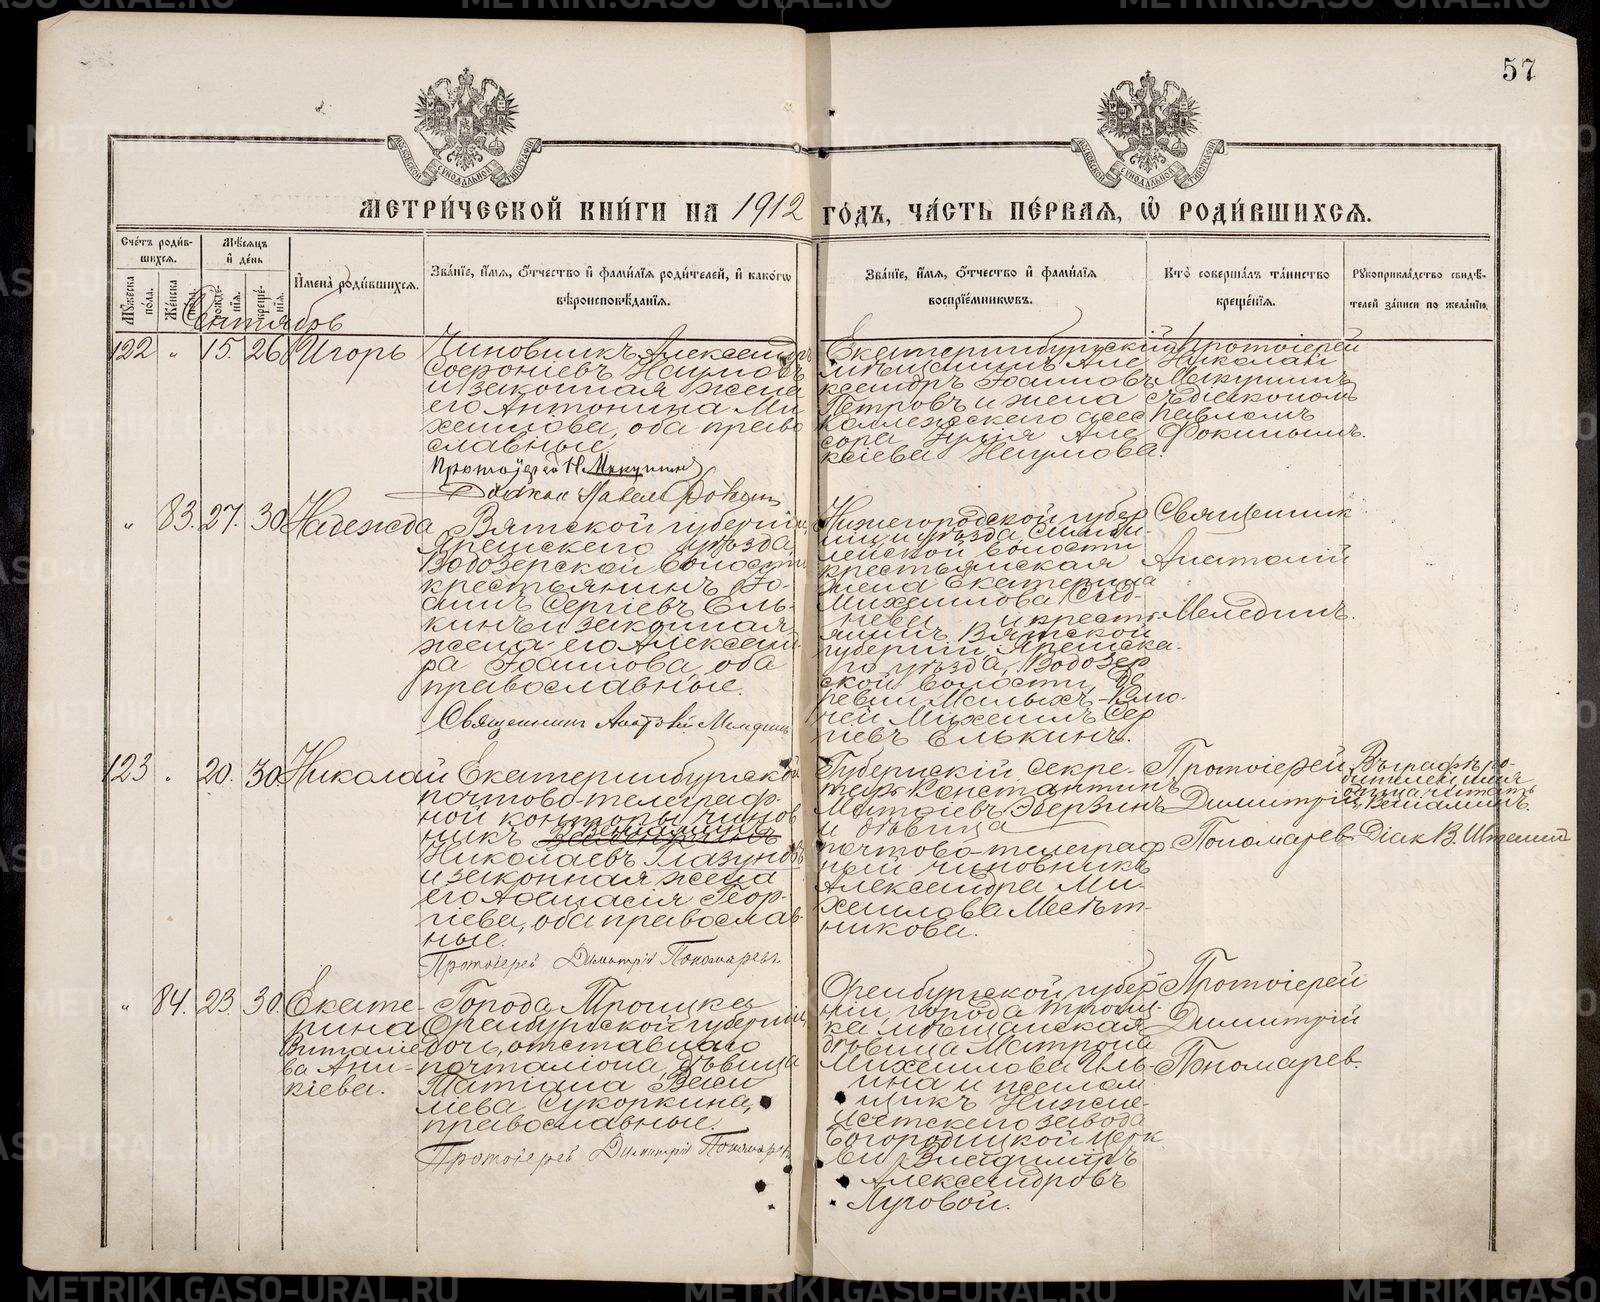 57
МЕТРИ́ЧЕСКОЙ КНИ́ГИ НА 1912 ГО́ДЪ, ЧА́СТЬ ПЕ́РВАЯ, Ѡ҆ РОДИ́ВШИХСЯ.
Сче́тъ роди́в-
шихся.
Мꙋ́жеска по́ла.
Же́нска по́ла.
Мѣ́сяцъ
и҆ де́нь
рожде́-нїя.
креще́-нїя.
И҆мена̀ роди́вшихся.
Зва́нїе, и҆́мя, ѻ҆́тчество и҆ фами́лїя роди́телей, и҆ како́гѡ
вѣроисповѣ́данїя.
Зва́нїе, и҆́мя, ѻ҆́тчество и҆ фами́лїя
воспрїе́мникѡвъ.
Кто̀ соверша́лъ та́инство
креще́нїя.
Рꙋкоприкла́дство свидѣ́-
телей за́писи по жела́нїю.
Сентябрь
122 " 15. 26 Игорь
Чиновникъ Александръ
Софоніевъ Наумовъ
и законная жена
его Антонина Ми
хаилова, оба право
славные.
Протоіерей Н. Микушинъ
Діаконъ Павелъ Фокинъ
Екатеринбургскій
мѣщанинъ Але
ксандръ Іоанновъ
Петровъ и жена
коллежскаго асес
сора Юлія Але
ксіева Наумова
Протоіерей
Николай
Микушинъ
съ діакономъ
Павломъ
Фокинымъ.
" 83. 27. 30 Надежда
Вятской губерніи,
Яранскаго уѣзда,
Водозерской волости
крестьянинъ Іо-
аннъ Сергіевъ Ель-
кинъ и законная
жена его Александ
ра Іоаннова, оба
православные.
Священникъ Анатолій Мелединъ
Нижегородской губер
ніи и уѣзда,
лейской волости
крестьянская
жена Екатерина
Михаилова Сид-
нева и кресть-
янинъ Вятской
губерніи Яранска-
го уѣзда, Водозер
ской волости, де
ревни Малыхъ-Клю-
чей Михаилъ Сер
гіевъ Елькинъ.
Священник
Анатолій
Мелединъ.
123 " 20. 30. Николай
Екатеринбургской
почтово-телеграф-
ной конторы чинов
никъ
Николаевъ Глазуновъ
и законная жена
его Афанасія Геор-
гіева, оба православ-
ные.
Протоіерей Димитрій Пономаревъ.
Губернскій Секре-
тарь Константинъ
Матѳіевъ Эберзинъ
и дѣвица
почтово-телеграф
ный чиновникъ
Александра Ми-
хаилова Месѣт-
никова.
Протоіерей
Димитрій
Пономарев
Въ графѣ ро-
дителей имя
отца читать
"Веніаминъ".
Діак. В.
" 84. 23. 30. Екате-
рина
Виталіе
ва Ани-
кіева.
Города Троицка
Оренбургской губерніи,
дочь отставного
почталіона, дѣвица
Татіана Васи
ліева Сукоркина,
православные.
Протоіерей Димитрій Пономаревъ
Оренбургской губер
ніи, города Троиц-
ка мѣщанская
дѣвица Матрона
Михаилова Иль-
ина и псалом
щикъ Нижне-
исетскаго завода
Богородицкой церк
ви Владиміръ
Александровъ
Луговой.
Протоіерей
Димитрій
Пономарев.